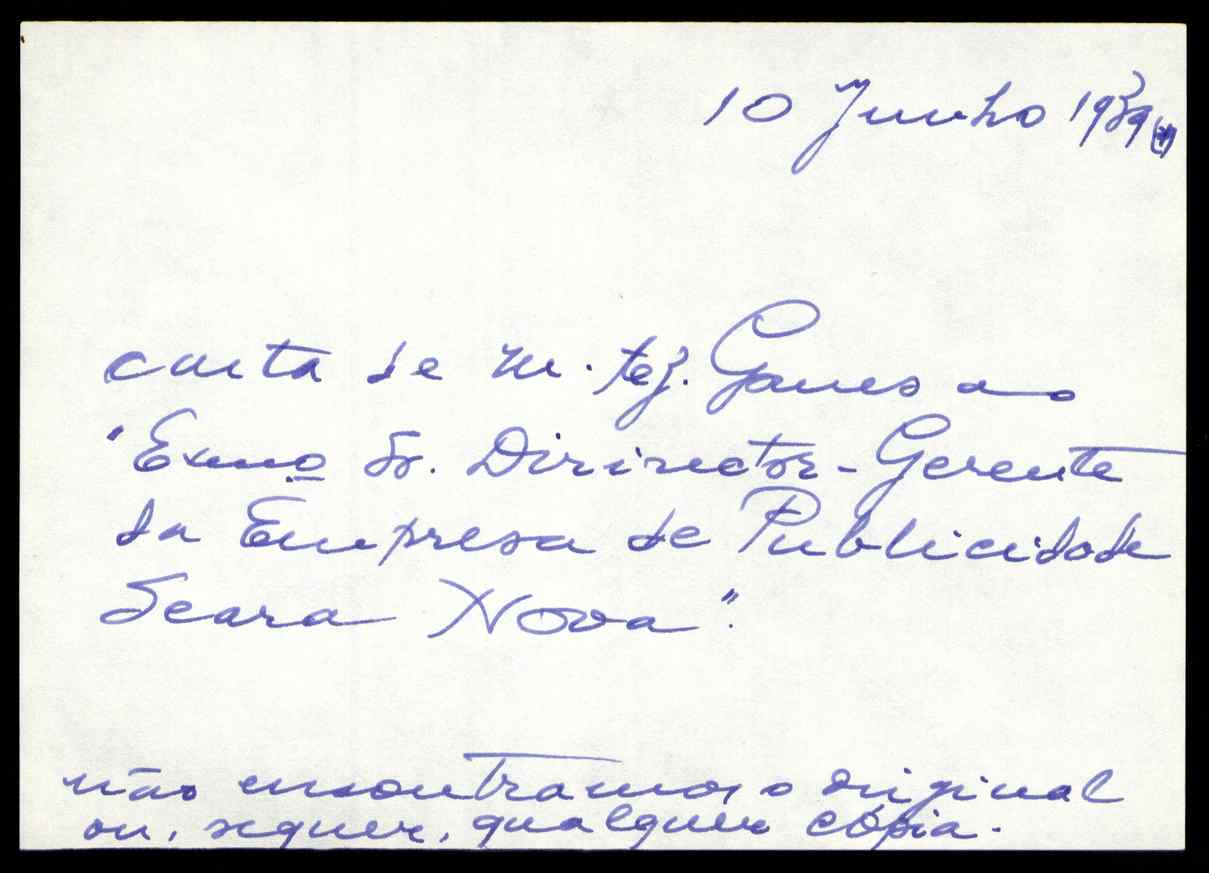 10 Junho 1939 (*)
carta de M. Teix. Gomes ao
"Exmo Sr. Dirirector-Gerente
da Empresa de Publicidade
Seara Nova".
não encontramos o original
ou, sequer, qualquer cópia.